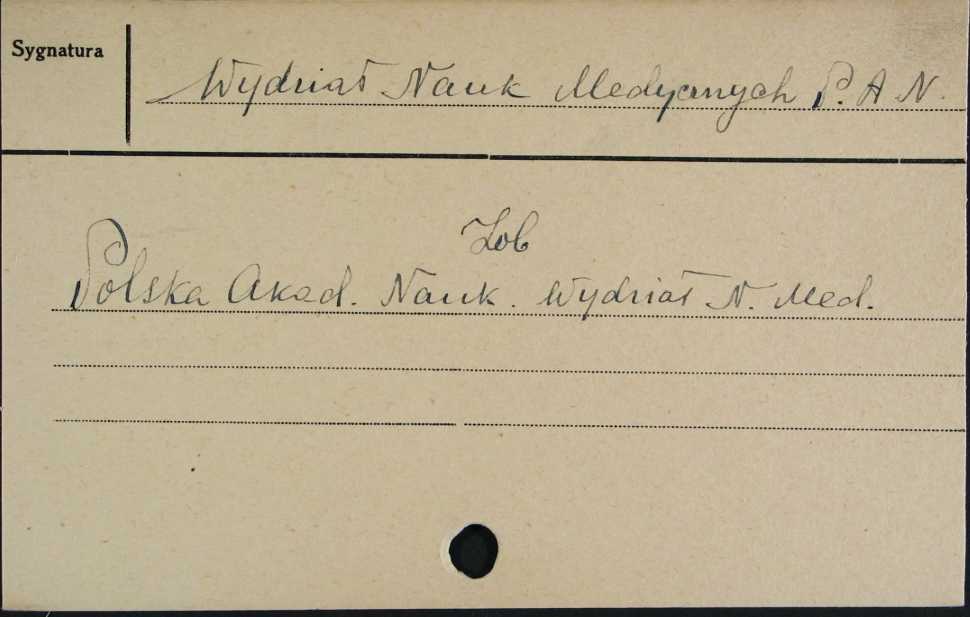 Sygnatura
Wydział Nauk Medycznych P. A N.
Zob
Polska Akad. Nauk. Wydział N. Med.